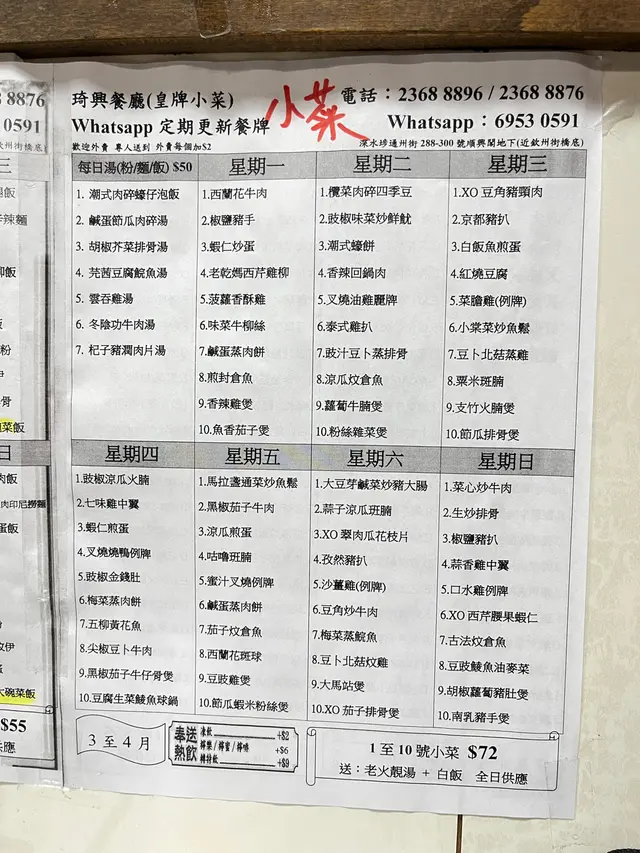 琦興餐廳(皇牌小菜)
小菜
電話：2368 8896 / 2368 8876
Whatsapp 定期更新餐牌
Whatsapp：6953 0591
歡迎外賣 專人送到 外賣每個加$2
深水埗通州街 288-300 號順興閣地下(近欽州街橋底)
每日湯(粉/麵/飯) $50
1. 潮式肉碎蠔仔泡飯
2. 鹹蛋節瓜肉碎湯
3. 胡椒芥菜排骨湯
4. 芫茜豆腐鯇魚湯
5. 雲吞雞湯
6. 冬陰功牛肉湯
7. 杞子豬潤肉片湯
星期一
1.西蘭花牛肉
2.椒鹽豬手
3.蝦仁炒蛋
4.老乾媽西芹雞柳
5.菠蘿香酥雞
6.味菜牛柳絲
7.鹹蛋蒸肉餅
8.煎封倉魚
9.香辣雞煲
10.魚香茄子煲
星期二
1.欖菜肉碎四季豆
2.豉椒味菜炒鮮魷
3.潮式蠔餅
4.香辣回鍋肉
5.叉燒油雞麗牌
6.泰式雞扒
7.豉汁豆卜蒸排骨
8.涼瓜炆倉魚
9.蘿蔔牛腩煲
10.粉絲雜菜煲
星期三
1.XO 豆角豬頸肉
2.京都豬扒
3.白飯魚煎蛋
4.紅燒豆腐
5.菜膽雞(例牌)
6.小棠菜炒魚鬆
7.豆卜北菇蒸雞
8.粟米斑腩
9.支竹火腩煲
10.節瓜排骨煲
星期四
1.豉椒涼瓜火腩
2.七味雞中翼
3.蝦仁煎蛋
4.叉燒燒鴨例牌
5.豉椒金錢肚
6.梅菜蒸肉餅
7.五柳黃花魚
8.尖椒豆卜牛肉
9.黑椒茄子牛仔骨煲
10.豆腐生菜鯪魚球鍋
星期五
1.馬拉盞通菜炒魚鬆
2.黑椒茄子牛肉
3.涼瓜煎蛋
4.咕嚕斑腩
5.蜜汁叉燒例牌
6.鹹蛋蒸肉餅
7.茄子炆倉魚
8.西蘭花斑球
9.豆豉雞煲
10.節瓜蝦米粉絲煲
星期六
1.大豆芽鹹菜炒豬大腸
2.蒜子涼瓜斑腩
3.XO 翠肉瓜花枝片
4.孜然豬扒
5.沙薑雞(例牌)
6.豆角炒牛肉
7.梅菜蒸鯇魚
8.豆卜北菇炆雞
9.大馬站煲
10.XO 茄子排骨煲
星期日
1.菜心炒牛肉
2.生炒排骨
3.椒鹽豬扒
4.蒜香雞中翼
5.口水雞例牌
6.XO 西芹腰果蝦仁
7.古法炆倉魚
8.豆豉鯪魚油麥菜
9.胡椒蘿蔔豬肚煲
10.南乳豬手煲
3 至 4 月
奉送熱飲
凍飲 +$2
檸樂/檸蜜/檸咖 +$6
樽特飲 +$9
1 至 10 號小菜 $72
送：老火靚湯 + 白飯 全日供應
8876
0591
三
粉
骨
菜飯
日
肉飯
肉印尼撈麵
蛋飯
大碗菜飯
$55
供應